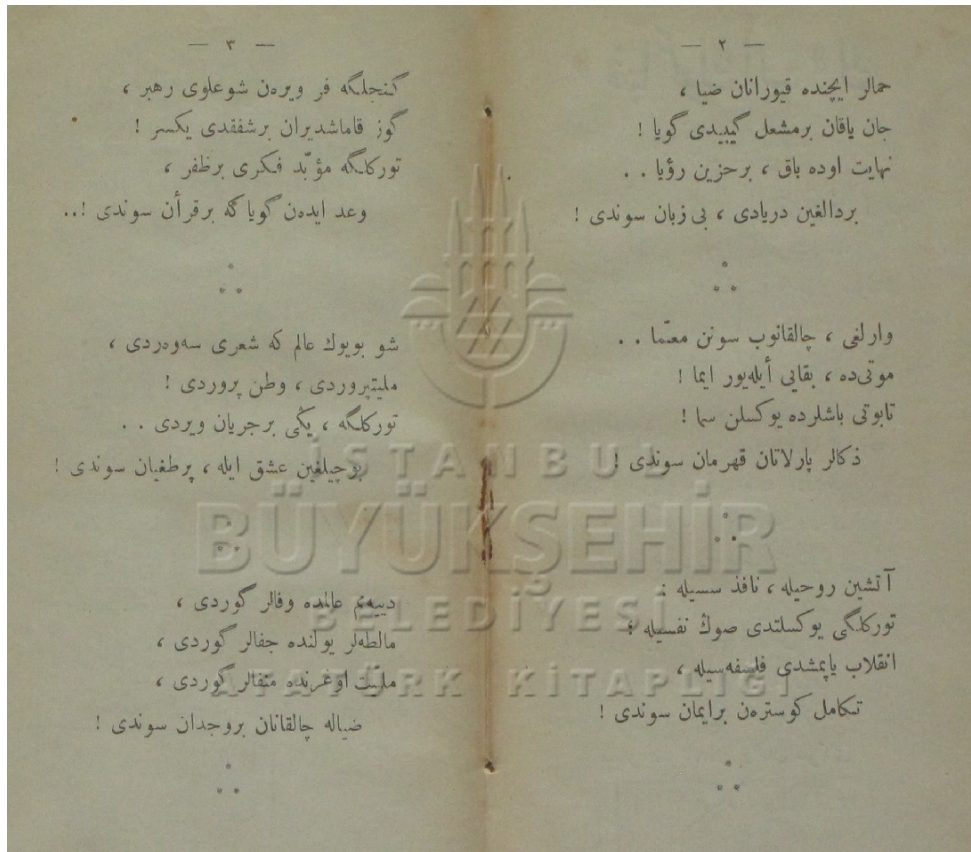 — ٢ —
حمالر ایچنده قیورانان ضیا ،
جان یاقان برمشعل گیبیدی گویا !
نهایت اوده باق ، برحزین رؤیا . .
بردالغین دریادی ، بی زبان سوندی !
وارلغی ، چالقانوب سونن معمّا . .
موتی‌ده ، بقایی أیله‌یور ایما !
تابوتی باشلرده یوکسلن سما !
ذکالر پارلاتان قهرمان سوندی !
آتشین روحیله ، نافذ سسیله :
تورکلگی یوکسلتدی صوڭ نفسیله !
انقلاب یاپمشدی فلسفه‌سیله ،
تکامل کوستره‌ن برایمان سوندی !
— ٣ —
گنجلگه فر ویره‌ن شو علوی رهبر ،
گوز قاماشدیران برشفقدی یکسر !
تورکلگه مؤبّد فکری برظفر ،
وعد ایده‌ن گویا که برقرأن سوندی !..
شو بویوك عالم که شعری سه‌وه‌ردی ،
ملیتپروردی ، وطن پروردی !
تورکلگه ، یڭی برجریان ویردی . .
بوچیلغین عشق ایله ، برطغیان سوندی !
دییه‌م عالمده وفالر گوردی ،
مالطه‌لر یولنده جفالر گوردی ،
ملیّت اوغرنده منفالر گوردی ،
ضیاله چالقانان بروجدان سوندی !
İSTANBUL
BÜYÜKŞEHİR
BELEDİYESİ
ATATÜRK KİTAPLIĞI